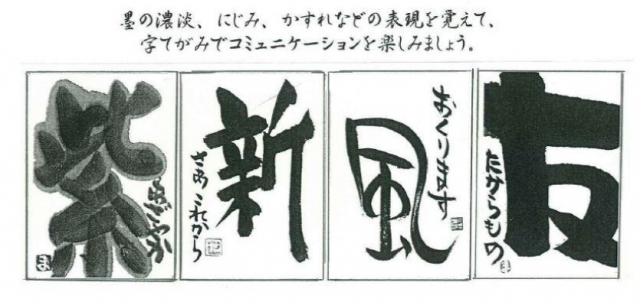 墨の濃淡、にじみ、かすれなどの表現を覚えて、
字てがみでコミュニケーションを楽しみましょう。
紫
新
さあこれから
風
おくります
友
たからもの